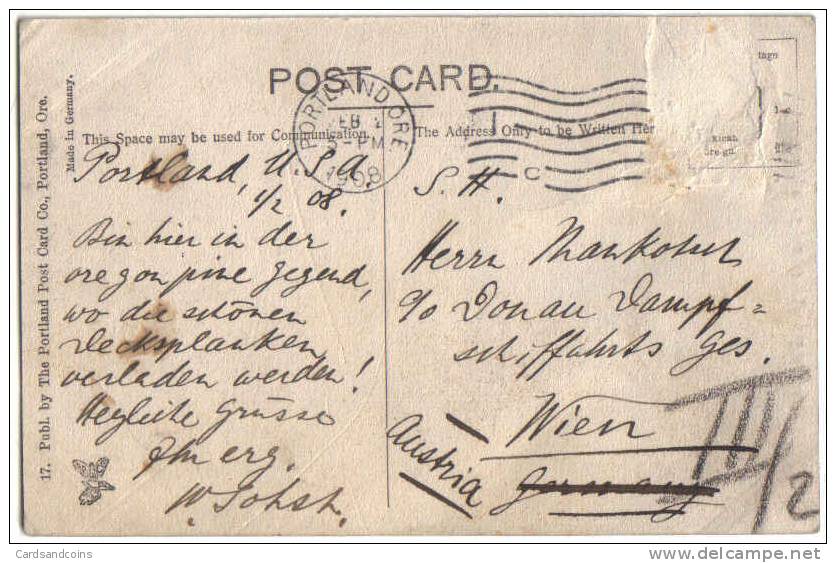 POST CARD.
PORTLAND ORE
FEB 1
5 - PM
1908
C
This Space may be used for Communication.
The Address Only to be Written Her
17. Publ. by The Portland Post Card Co., Portland, Ore.
Made in Germany.
Portland, U.S.A.
1/2 08.
Bin hier in der
oregonpine gegend,
wo die schönen
Decksplanken
verladen werden!
Herzliche Grüsse
Ihr erg.
S. H.
Herrn
c/o Donau Dampf=
schiffahrts Ges.
Wien
Austria
Germany
III/2
Cardsandcoins
www.delcampe.net